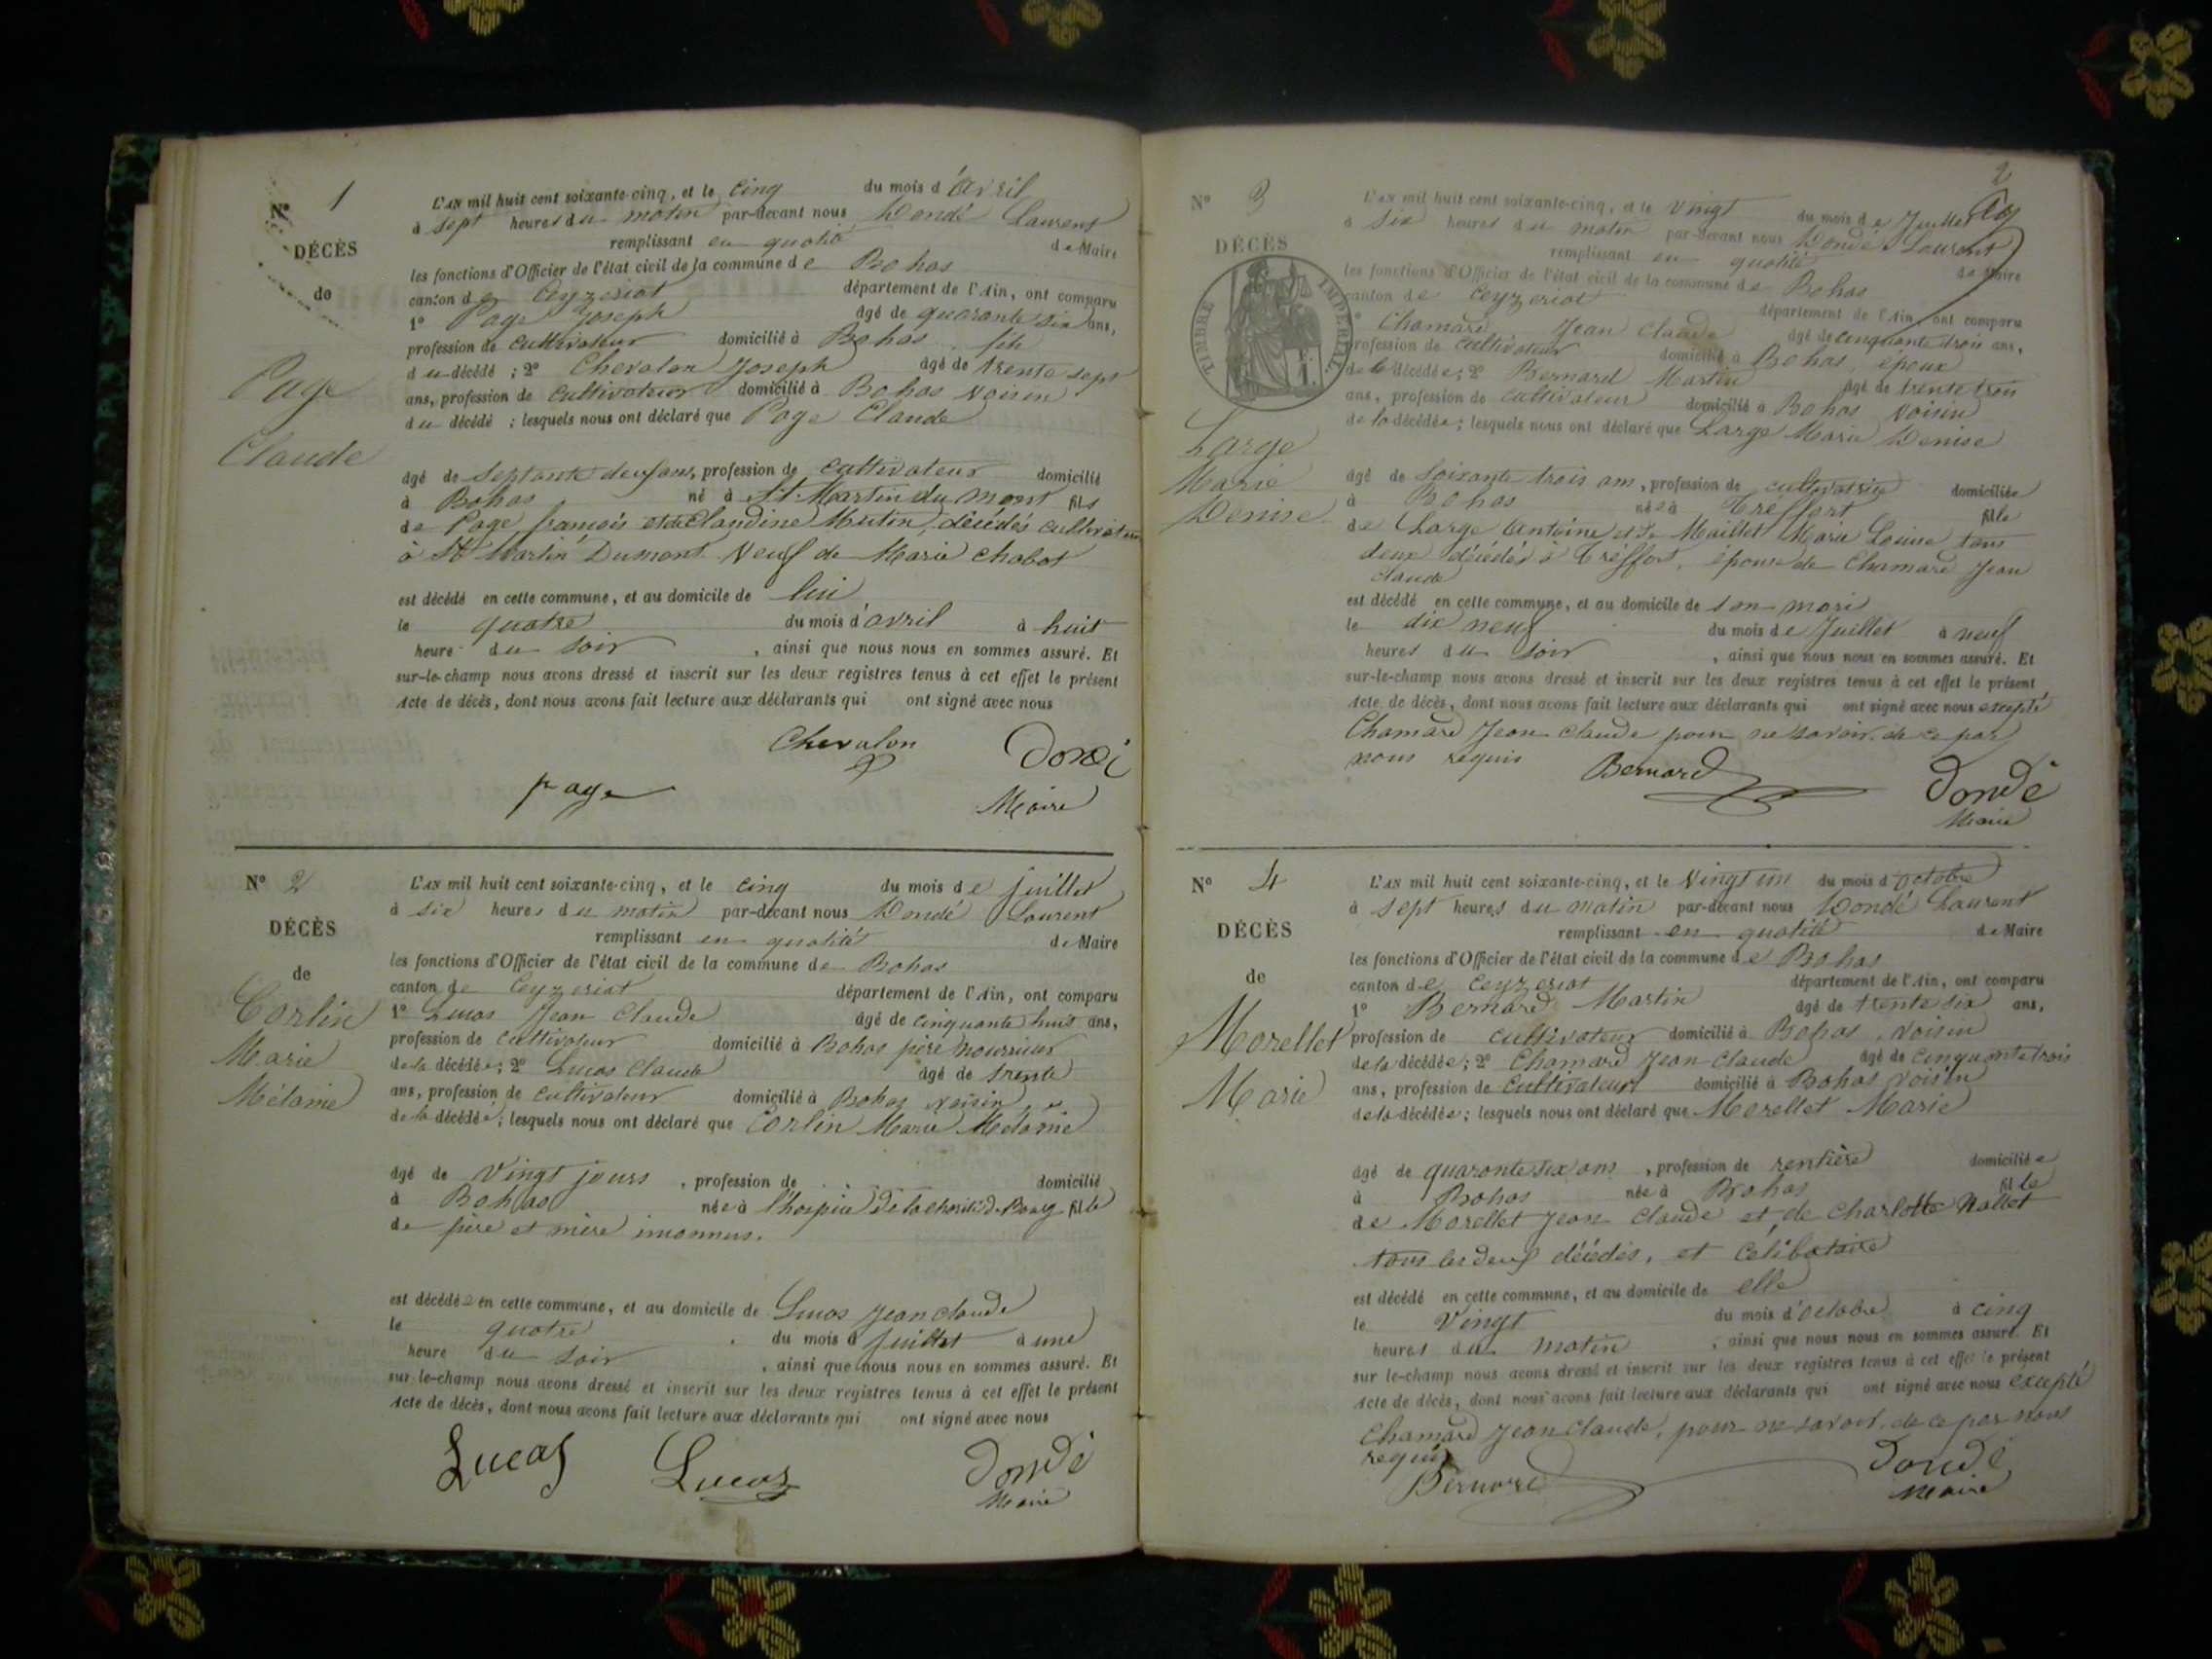 Nº 1
DÉCÈS
de
Page
Claude
L'AN mil huit cent soixante-cinq, et le cinq du mois d'avril
à sept heures du matin par-devant nous Dondé Laurent
remplissant en qualité de Maire
les fonctions d'Officier de l'état civil de la commune de Bohas
canton de Ceyzeriat département de l'Ain, ont comparu
1º Page Joseph âgé de quarante six ans,
profession de cultivateur domicilié à Bohas fils
du décédé ; 2º Chevalon Joseph âgé de trente sept
ans, profession de cultivateur domicilié à Bohas voisin
du décédé ; lesquels nous ont déclaré que Page Claude
âgé de septante deux ans, profession de cultivateur domicilié
à Bohas né à St Martin du mont fils
de Page françois et de Claudine Mutin, décédés cultivateurs
à St Martin Dumont veuf de Marie Chabot
est décédé en cette commune, et au domicile de lui
le quatre du mois d'avril à huit
heure du soir, ainsi que nous nous en sommes assuré. Et
sur-le-champ nous avons dressé et inscrit sur les deux registres tenus à cet effet le présent
Acte de décès, dont nous avons fait lecture aux déclarants qui ont signé avec nous
Chevalon Dondé
page Maire
Nº 2
DÉCÈS
de
Corlin
Marie
Mélanie
L'AN mil huit cent soixante-cinq, et le cinq du mois de juillet
à six heures du matin par-devant nous Dondé Laurent
remplissant en qualité de Maire
les fonctions d'Officier de l'état civil de la commune de Bohas
canton de Ceyzeriat département de l'Ain, ont comparu
1º Lucas Jean Claude âgé de cinquante huit ans,
profession de cultivateur domicilié à Bohas père nourricier
de la décédée ; 2º Lucas Claude âgé de trente
ans, profession de cultivateur domicilié à Bohas voisin
de la décédée ; lesquels nous ont déclaré que Corlin Marie Mélanie
âgé de vingt jours, profession de domicilié
à Bohas née à l'hospice de la charité de Bourg fille
de père et mère inconnus.
est décédée en cette commune, et au domicile de Lucas Jean claude
le quatre du mois d juillet à une
heure du soir, ainsi que nous nous en sommes assuré. Et
sur-le-champ nous avons dressé et inscrit sur les deux registres tenus à cet effet le présent
Acte de décès, dont nous avons fait lecture aux déclarants qui ont signé avec nous
Lucas Lucas Dondé
Maire
2
Nº 3
DÉCÈS
TIMBRE IMPÉRIAL
Large
Marie
Denise
L'AN mil huit cent soixante-cinq, et le vingt du mois de Juillet
à six heures du matin par-devant nous Dondé Laurent
remplissant en qualité de Maire
les fonctions d'Officier de l'état civil de la commune de Bohas
canton de Ceyzeriat département de l'Ain, ont comparu
Chamard Jean Claude âgé de cinquante trois ans,
profession de cultivateur domicilié à Bohas, époux
de la décédée ; 2º Bernard Martin âgé de trente trois
ans, profession de cultivateur domicilié à Bohas voisin
de la décédée ; lesquels nous ont déclaré que Large Marie Denise
âgé de soixante trois ans, profession de cultivatrice domiciliée
à Bohas née à Treffort fille
de Large Antoine et de Maillet Marie Louise tous
deux décédés à Tréffort, épouse de Chamard Jean
Claude
est décédé en cette commune, et au domicile de son mari
le dix neuf du mois de Juillet à neuf
heures du soir, ainsi que nous nous en sommes assuré. Et
sur-le-champ nous avons dressé et inscrit sur les deux registres tenus à cet effet le présent
Acte de décès, dont nous avons fait lecture aux déclarants qui ont signé avec nous excepté
Chamard Jean Claude pour ne savoir, de ce par
nous requis Bernard Dondé
Maire
Nº 4
DÉCÈS
de
Morellet
Marie
L'AN mil huit cent soixante-cinq, et le vingt un du mois d'octobre
à sept heures du matin par-devant nous Dondé Laurent
remplissant en qualité de Maire
les fonctions d'Officier de l'état civil de la commune de Bohas
canton de Ceyzeriat département de l'Ain, ont comparu
1º Bernard Martin âgé de trente six ans,
profession de cultivateur domicilié à Bohas, voisin
de la décédée ; 2º Chamard Jean Claude âgé de cinquante trois
ans, profession de cultivateur domicilié à Bohas voisin
de la décédée ; lesquels nous ont déclaré que Morellet Marie
âgé de quarante six ans, profession de rentière domiciliée
à Bohas née à Bohas fille
de Morellet Jean Claude et de Charlotte Nallet
tous les deux décédés, et célibataire
est décédé en cette commune, et au domicile de elle
le vingt du mois d'octobre à cinq
heures du matin, ainsi que nous nous en sommes assuré. Et
sur le-champ nous avons dressé et inscrit sur les deux registres tenus à cet effet le présent
Acte de décès, dont nous avons fait lecture aux déclarants qui ont signé avec nous excepté
Chamard Jean Claude, pour ne savoir, de ce par nous
requis
Bernard Dondé
Maire